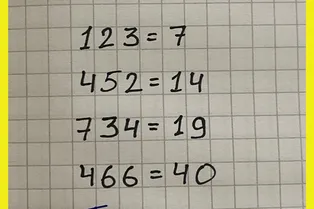 123=7
452=14
734=19
466=40